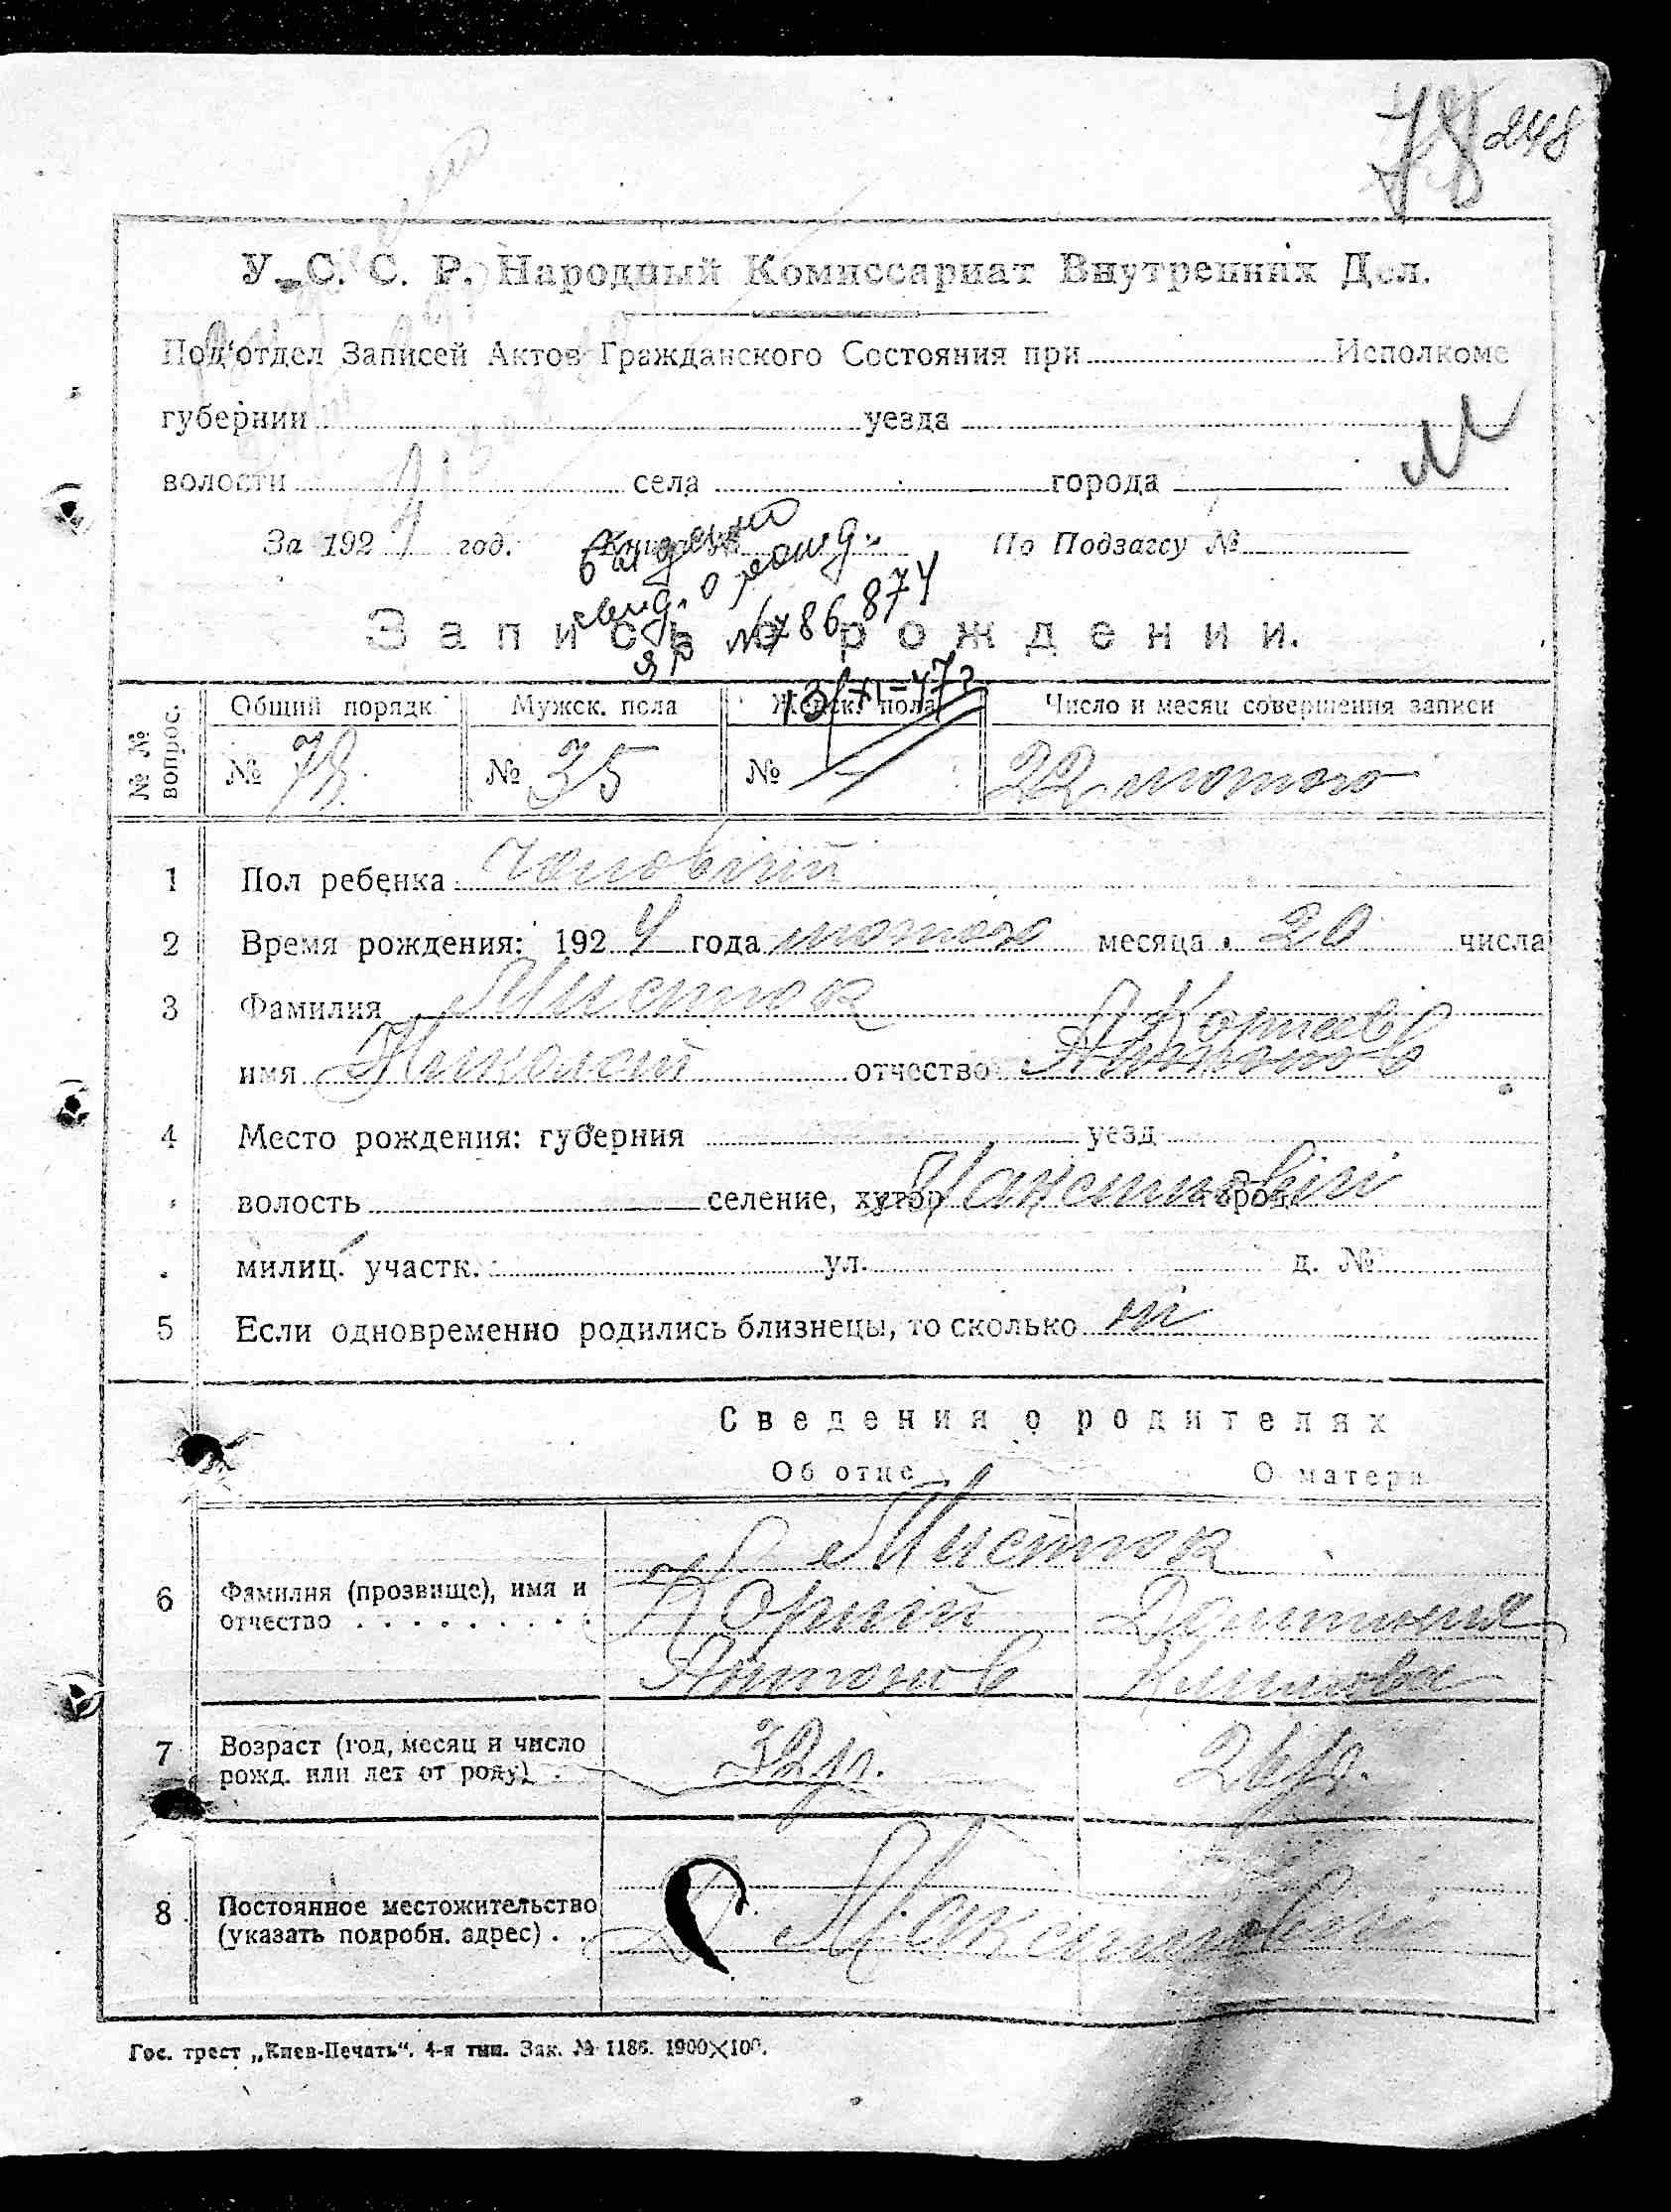 78 248
У. С. С. Р. Народный Комиссариат Внутренних Дел.
Под'отдел Записей Актов Гражданского Состояния при Исполкоме
губернии уезда
волости села города
За 1924 год. По Подзагсу №
выдано
свид. о рожд.
Запись о рождении.
№ 786874
13/XI-47г
№ № вопрос.
Общий порядк. Мужск. пола Женск. пола Число и месяц совершения записи
№ 78 № 35 № 22 лютого
1 Пол ребенка чоловічий
2 Время рождения: 1924 года лютого месяца 20 числа
3 Фамилия Листюк
Корнеев
имя Николай отчество Антонов
4 Место рождения: губерния уезд
волость селение, хутор город
милиц. участк. ул. д. №
5 Если одновременно родились близнецы, то сколько ні
Сведения о родителях
Об отце О матери
Листюк
6 Фамилия (прозвище), имя и отчество Корній
Антонов Климова
7 Возраст (год, месяц и число рожд. или лет от роду) 32 р. 26 р.
8 Постоянное местожительство (указать подробн. адрес)
Гос. трест „Киев-Печать". 4-я тип. Зак. № 1186. 1900×100.